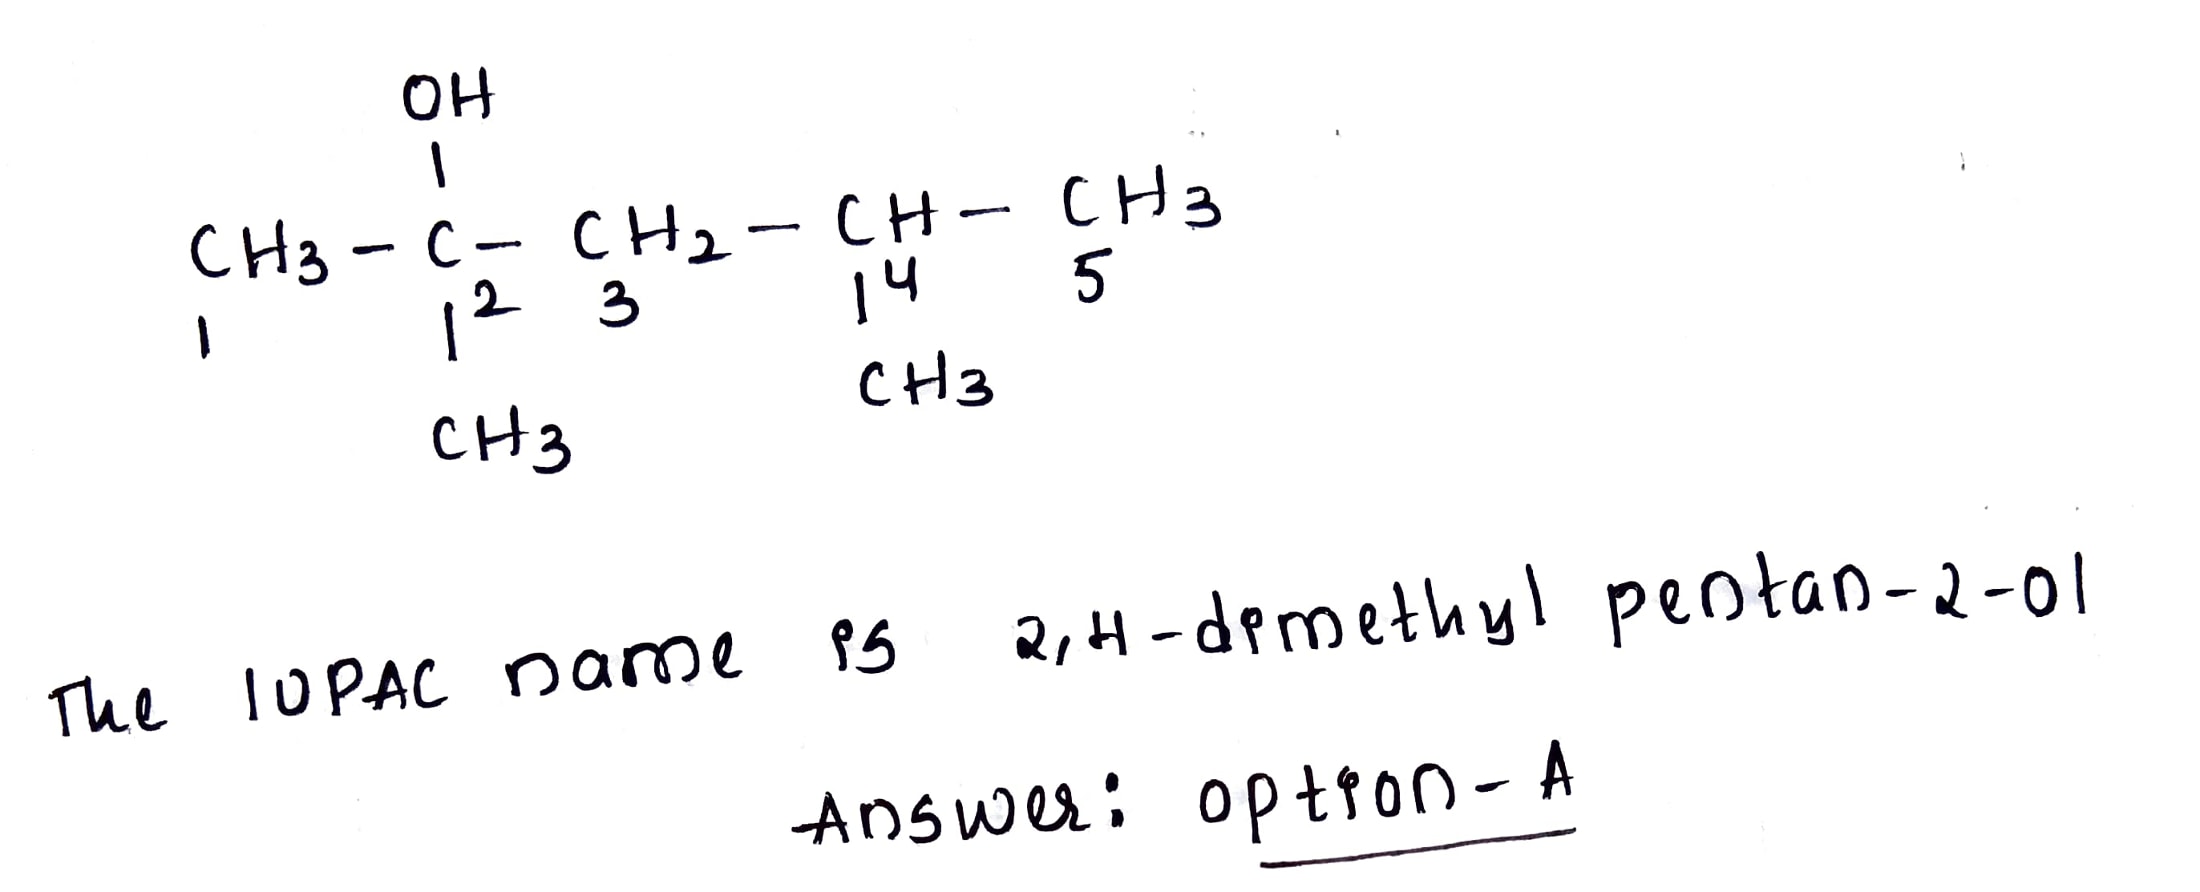 OH
CH3 - C - CH2 - CH - CH3
1 2 3 4 5
CH3
CH3
The IUPAC name is 2,4-dimethyl pentan-2-ol
Answer: option-A